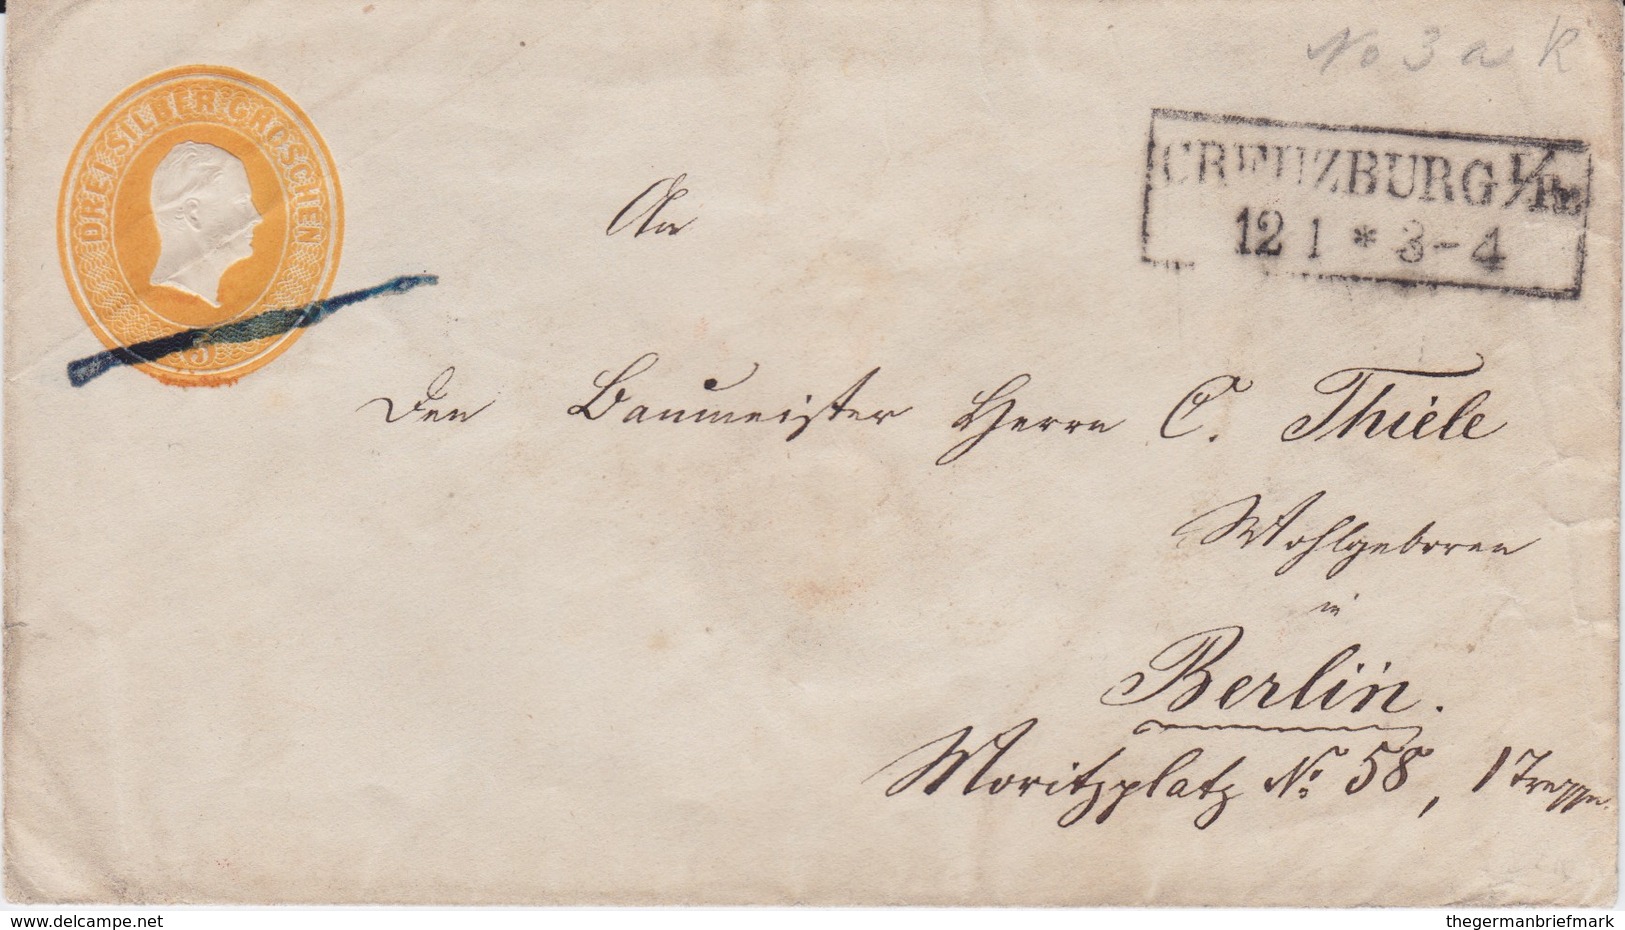 No 3 a K
DREI SILBER GROSCHEN
3
CREUZBURG I/Pr.
12 1 * 3-4
An
Den Baumeister Herrn C. Thiele
Wohlgeboren
in
Berlin.
Moritzplatz No: 58, 1 Treppe.
www.delcampe.net
thegermanbriefmark